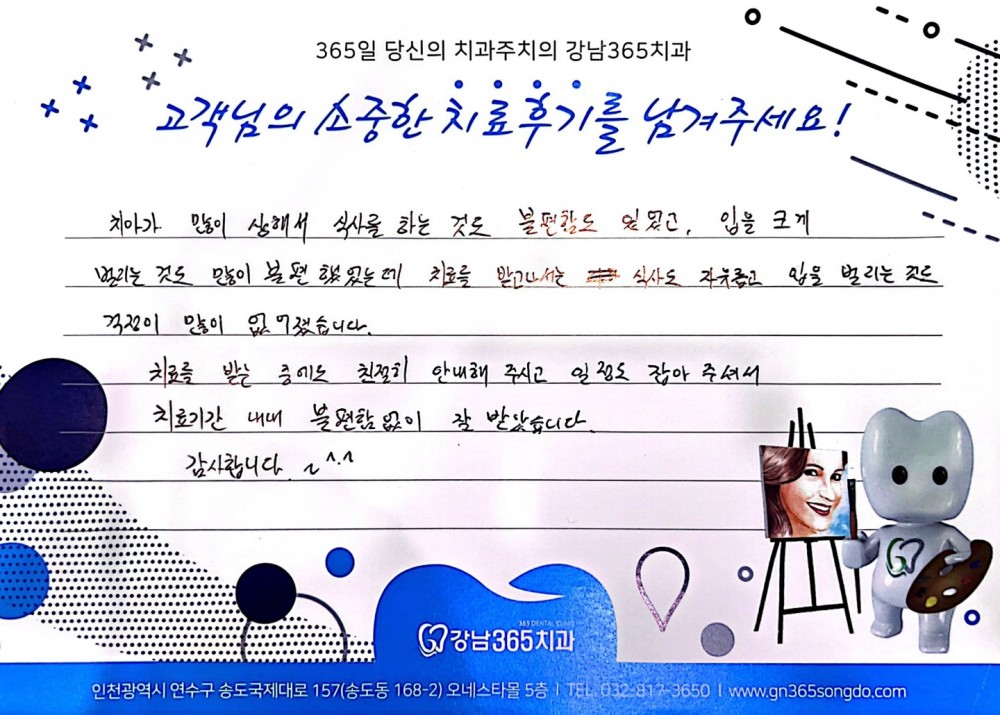 365일 당신의 치과주치의 강남365치과
고객님의 소중한 치료후기를 남겨주세요!
치아가 많이 상해서 식사를 하는 것도 불편함도 있었고, 입을 크게
벌리는 것도 많이 불편했었는데 치료를 받고나서는 식사도 자유롭고 입을 벌리는 것도
걱정이 많이 없어졌습니다.
치료를 받는 중에도 친절히 안내해 주시고 일정도 잡아 주셔서
치료기간 내내 불편함없이 잘 받았습니다.
감사합니다. ~^.^
365 DENTAL CLINIC
강남365치과
인천광역시 연수구 송도국제대로 157(송도동 168-2) 오네스타몰 5층 | TEL. 032-817-3650 | www.gn365songdo.com